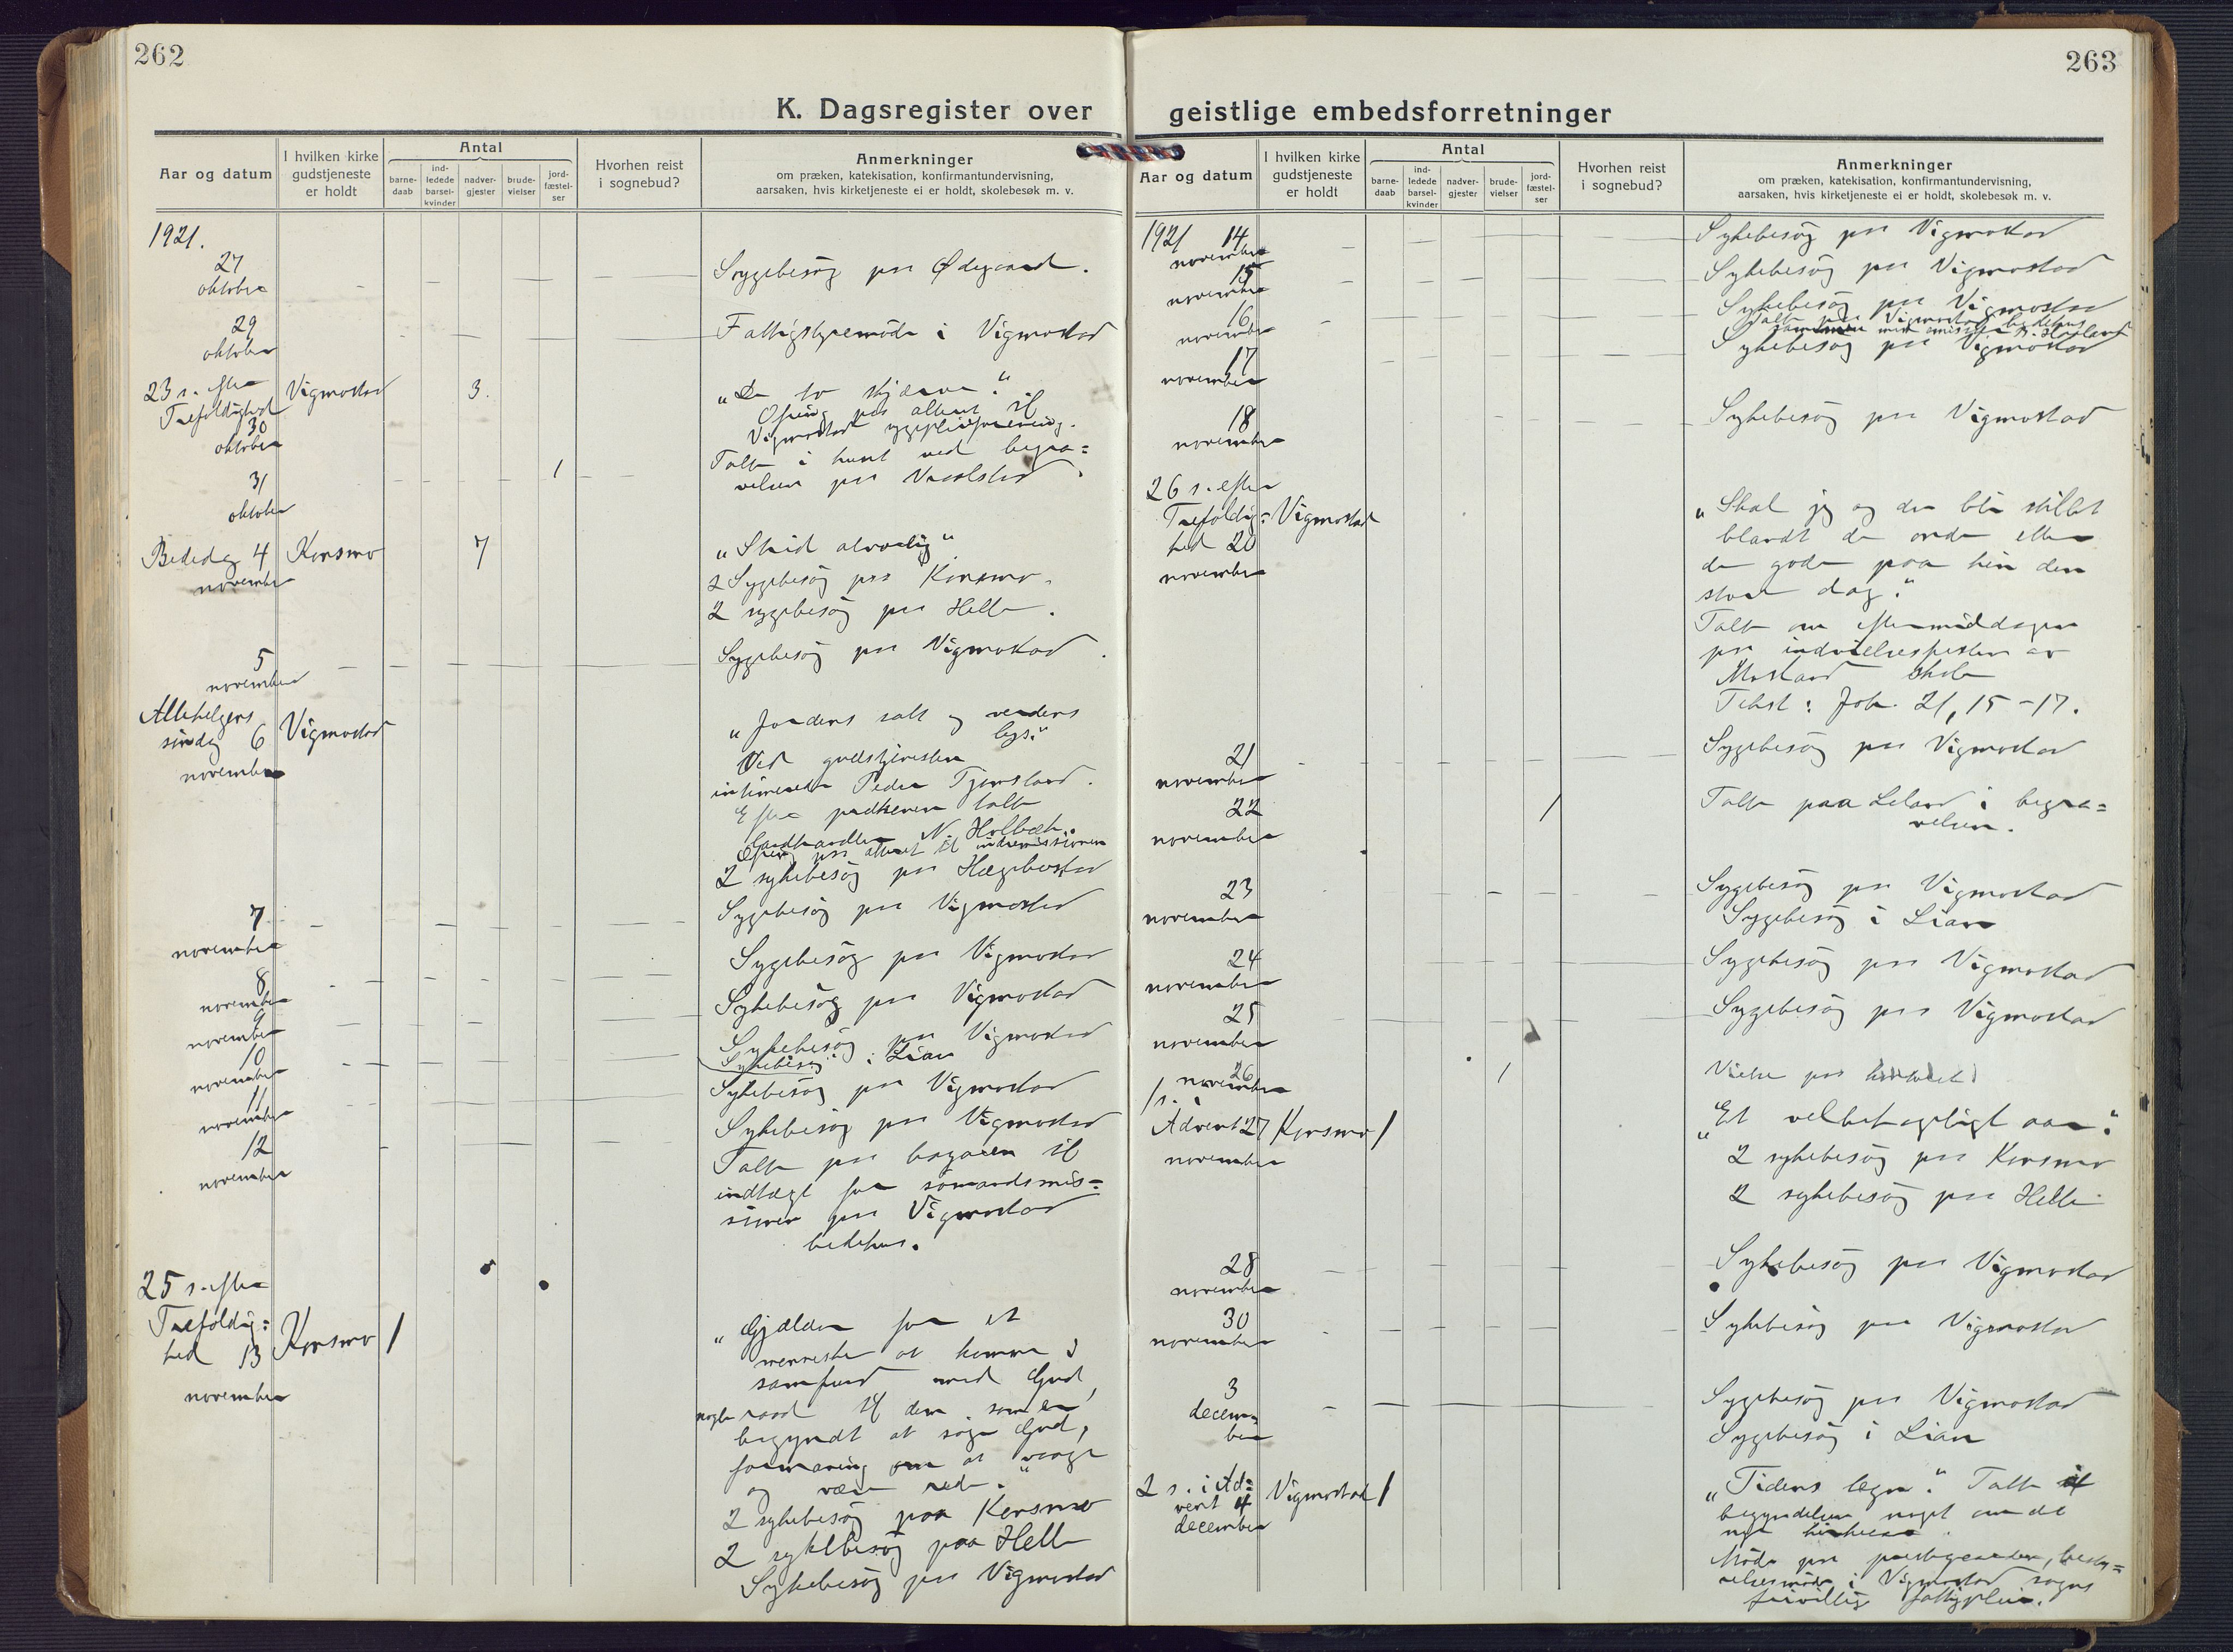 262
K. Dagsregister over
Aar og datum
I hvilken kirke
gudstjeneste
er holdt
Antal
barne-
daab
ind-
ledede
barsel-
kvinder
nadver-
gjester
brude-
vielser
jord-
fæstel-
ser
Hvorhen reist
i sognebud?
Anmerkninger
om præken, katekisation, konfirmantundervisning,
aarsaken, hvis kirketjeneste ei er holdt, skolebesøk m. v.
1921.
27
oktober
Sygebesøg paa Ødegaard.
29
oktober
Fattigstyremøde i Vigmostad
23 s. efter
Trefoldighed
30
oktober
Vigmostad
3.
"De to skjærve."
Ofring paa alteret til
Vigmostad sygepleieforening.
31
oktober
1
Talte i huset ved begra=
velsen paa
Bededag 4
november
Konsmo
7
"Strid alvorlig"
2 Sygebesøg paa Konsmo.
2 sygebesøg paa Helle.
5
november
Sygebesøg paa Vigmostad.
Allehelgens
søndag 6
november
Vigmostad
"Jordens salt og verdens
lys."
Ved gudstjenesten
intimeredes Peder Tjomsland.
Efter prædikenen talte
landhandler N. Holbæk.
Ofring paa alteret til indremissionen
2 sykebesøg paa Hægebostad
7
november
Sygebesøg paa Vigmostad
8
november
Sygebesøg paa Vigmostad
9
november
Sykebesøg paa Vigmostad
10
november
Sykebesøg paa Vigmostad
Sykebesøg i Lian
11
november
Sykebesøg paa Vigmostad
12
november
Sykebesøg paa Vigmostad
Talte paa basaren til
indtægt for sømandsmis=
sionen paa Vigmostad
bedehus.
25 s. efter
Trefoldig=
hed 13
november
Konsmo
1
"Gjælder for et
menneske at komme i
samfund med Gud,
nogle raad til dem som er
begyndt at søge Gud,
formaning om at vaage
og være rede."
2 sykebesøg paa Konsmo
2 sykebesøg paa Helle
Sykebesøg paa Vigmostad
263
geistlige embedsforretninger
Aar og datum
I hvilken kirke
gudstjeneste
er holdt
Antal
barne-
daab
ind-
ledede
barsel-
kvinder
nadver-
gjester
brude-
vielser
jord-
fæstel-
ser
Hvorhen reist
i sognebud?
Anmerkninger
om præken, katekisation, konfirmantundervisning,
aarsaken, hvis kirketjeneste ei er holdt, skolebesøk m. v.
1921 14
november
Sykebesøg paa Vigmostad
15
november
Sykebesøg paa Vigmostad
16
november
Sykebesøg paa Vigmostad
Talte paa Vigmostad bedehus
sammen med
17
november
Sykebesøg paa Vigmostad
18
november
Sykebesøg paa Vigmostad
26 s. efter
Trefoldig=
hed 20
november
Vigmostad
"Skal jeg og du bli stillet
blandt de onde eller
de gode paa hin den
store dag."
Talte om eftermiddagen
paa indvielsesfesten av
skole
Tekst: Joh. 21, 15-17.
21
november
Sygebesøg paa Vigmostad
22
november
1
Talte paa Leland i begra=
velsen.
23
november
Sygebesøg paa Vigmostad
Sygebesøg i Lian
24
november
Sygebesøg paa Vigmostad
25
november
Sygebesøg paa Vigmostad
26
november
1
Vielse paa kontoret
1 s. i
Advent 27
november
Konsmo
1
"Et velbehageligt aar."
2 sykebesøg paa Konsmo
2 sykebesøg paa Helle
28
november
Sykebesøg paa Vigmostad
30
november
Sykebesøg paa Vigmostad
3
decem=
ber
Sygebesøg paa Vigmostad
Sygebesøg i Lian
2 s. i Ad=
vent 4
december
Vigmostad
1
"Tidens tegn." Talte i
begyndelsen noget om det
nye kirkeaar.
Møde paa prestegaarden, besty=
relsesmøde i Vigmostad sogns
frivillig fattigpleie.